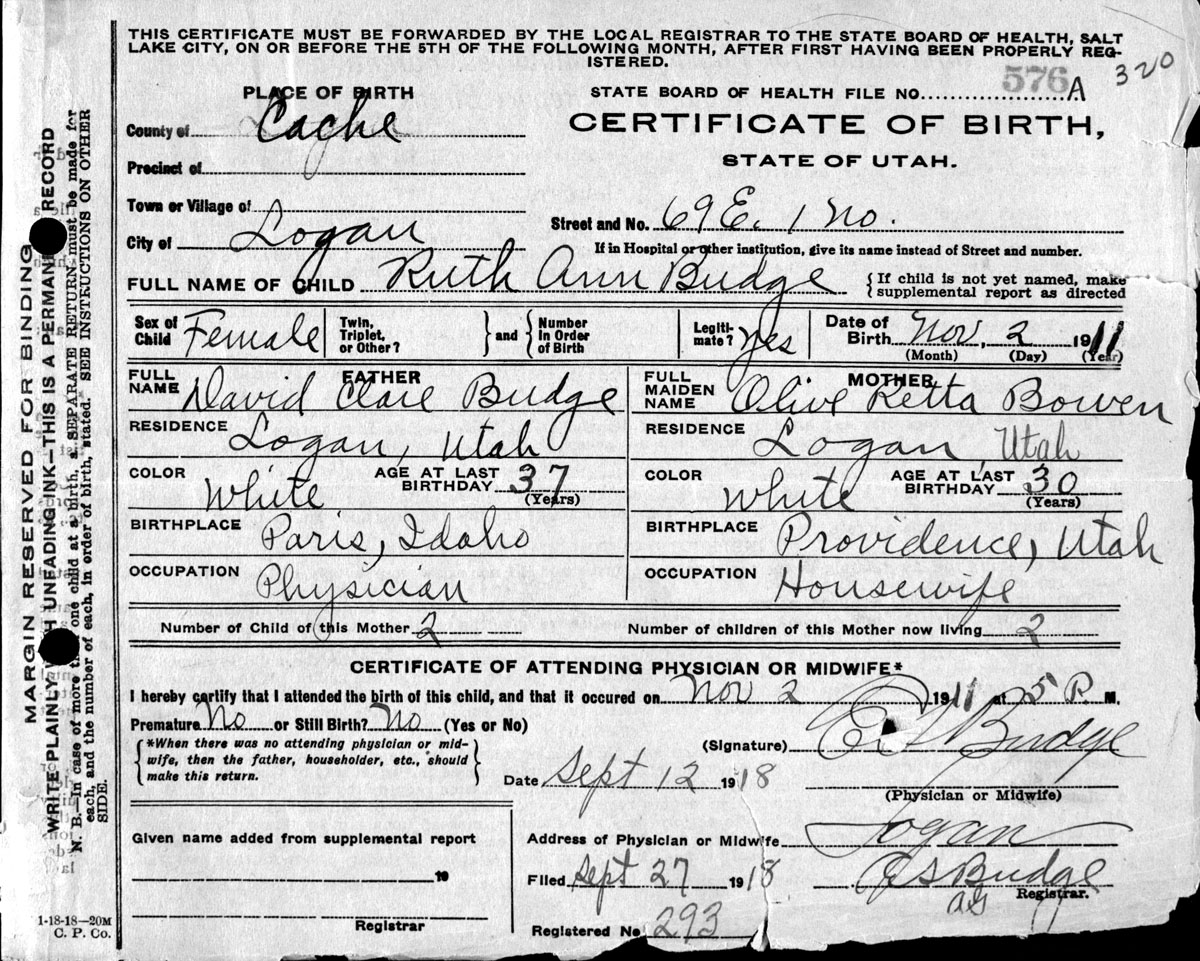 THIS CERTIFICATE MUST BE FORWARDED BY THE LOCAL REGISTRAR TO THE STATE BOARD OF HEALTH, SALT
LAKE CITY, ON OR BEFORE THE 5TH OF THE FOLLOWING MONTH, AFTER FIRST HAVING BEEN PROPERLY REG-
ISTERED.
576 A 320
PLACE OF BIRTH
STATE BOARD OF HEALTH FILE NO.
County of Cache
CERTIFICATE OF BIRTH,
Precinct of
STATE OF UTAH.
Town or Village of
Street and No. 69 E. 1 No.
City of Logan
If in Hospital or other institution, give its name instead of Street and number.
FULL NAME OF CHILD Ruth Ann Budge
{ If child is not yet named, make
supplemental report as directed
Sex of Child Female
Twin, Triplet, or Other? } and { Number in Order of Birth
Legiti-mate? Yes
Date of Birth Nov. 2 1911
(Month) (Day) (Year)
FATHER
FULL NAME David Clare Budge
RESIDENCE Logan, Utah
COLOR White AGE AT LAST BIRTHDAY 37 (Years)
BIRTHPLACE Paris, Idaho
OCCUPATION Physician
MOTHER
FULL MAIDEN NAME Olive Retta Bowen
RESIDENCE Logan, Utah
COLOR White AGE AT LAST BIRTHDAY 30 (Years)
BIRTHPLACE Providence, Utah
OCCUPATION Housewife
Number of Child of this Mother 2 Number of children of this Mother now living 2
CERTIFICATE OF ATTENDING PHYSICIAN OR MIDWIFE*
I hereby certify that I attended the birth of this child, and that it occured on Nov 2 1911 at 5 P. M.
Premature No or Still Birth? No (Yes or No)
{ *When there was no attending physician or mid-
wife, then the father, householder, etc., should
make this return. }
(Signature) Budge
(Physician or Midwife)
Date Sept 12 1918
Given name added from supplemental report
19
Registrar
Address of Physician or Midwife Logan
Filed Sept 27 1918
Budge
Registrar.
Registered No 293
1-18-18—20M
C. P. Co.
MARGIN RESERVED FOR BINDING
WRITE PLAINLY UNFADING INK—THIS IS A PERMANENT RECORD
N. B.—In case of more one child at a birth, a SEPARATE RETURN must be made for
each, and the number of each, in order of birth, stated. SEE INSTRUCTIONS ON OTHER
SIDE.